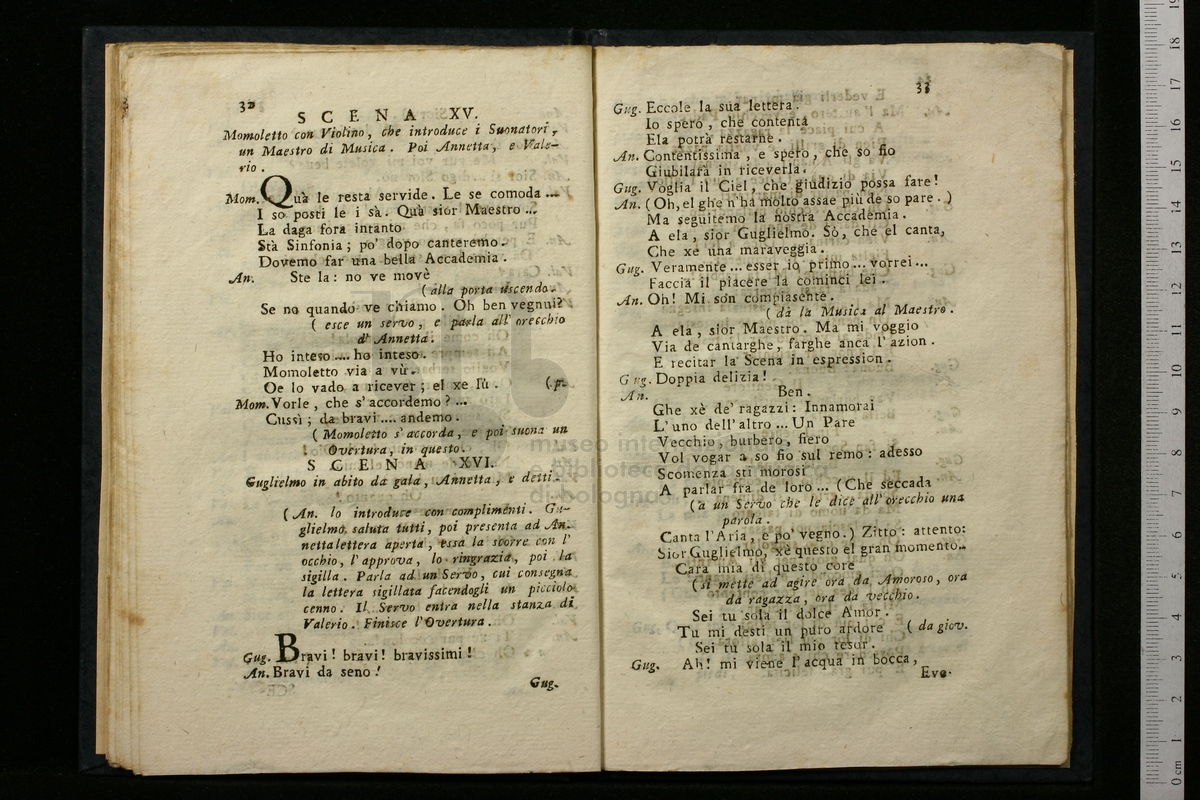 32
SCENA XV.
Momoletto con Violino, che introduce i Suonatori,
un Maestro di Musica. Poi Annetta, e Vale-
rio.
Mom. Quà le resta servide. Le se comoda ...
I so posti le i sà. Quà sior Maestro ...
La daga fora intanto
Stà Sinfonia; po' dopo canteremo.
Dovemo far una bella Accademia.
An. Ste la: no ve movè
(alla porta uscendo.
Se no quando ve chiamo. Oh ben vegnui?
( esce un servo, e parla all' orecchio
d' Annetta.
Ho inteso .... ho inteso.
Momoletto via a vù.
Oe lo vado a ricever; el xe lù. (p.
Mom. Vorle, che s'accordemo? ...
Cussì; da bravi .... andemo.
( Momoletto s'accorda, e poi suona un
Overtura, in questo.
SCENA XVI.
Guglielmo in abito da gala, Annetta, e detti.
(An. lo introduce con complimenti. Gu-
glielmo saluta tutti, poi presenta ad An-
netta lettera aperta, essa la scorre con l'
occhio, l'approva, lo ringrazia, poi la
sigilla. Parla ad un Servo, cui consegna
la lettera sigillata facendogli un picciolo
cenno. Il Servo entra nella stanza di
Valerio. Finisce l'Overtura.
Gug. Bravi! bravi! bravissimi!
An. Bravi da seno!
Gug.
33
Gug. Eccole la sua lettera.
Io spero, che contenta
Ela potrà restarne.
An. Contentissima, e spero, che so fio
Giubilarà in riceverla.
Gug. Voglia il Ciel, che giudizio possa fare!
An. (Oh, el ghe n'ha molto assae più de so pare.)
Ma seguitemo la nostra Accademia.
A ela, sior Guglielmo. Sò, che el canta,
Che xè una maraveggia.
Gug. Veramente ... esser io primo ... vorrei ...
Faccia il piacere la cominci lei.
An. Oh! Mi son compiasente.
(dà la Musica al Maestro.
A ela, sior Maestro. Ma mi voggio
Via de cantarghe, farghe anca l'azion.
E recitar la Scena in espression.
Gug. Doppia delizia!
An. Ben.
Ghe xè de' ragazzi: Innamorai
L'uno dell'altro ... Un Pare
Vecchio, burbero, fiero
Vol vogar a so fio sul remo: adesso
Scomenza sti morosi
A parlar fra de loro ... (Che seccada
(a un Servo che le dice all'orecchio una
parola.
Canta l'Aria, e po' vegno.) Zitto: attento:
Sior Guglielmo, xè questo el gran momento..
Cara mia di questo core
(si mette ad agire ora da Amoroso, ora
da ragazza, ora da vecchio.
Sei tu sola il dolce Amor.
Tu mi desti un puro ardore (da giov.
Sei tu sola il mio tesor.
Gug. Ah! mi viene l'acqua in bocca,
Eve-
museo
biblioteca
di bologna
0 cm 1 2 3 4 5 6 7 8 9 10 11 12 13 14 15 16 17 18